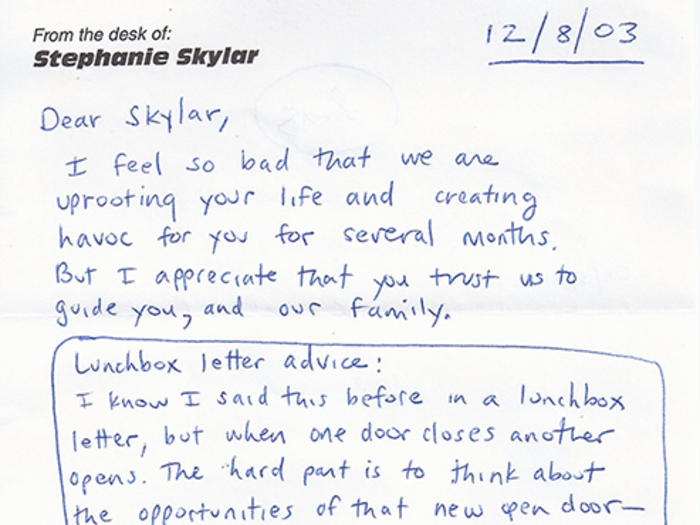 From the desk of:
Stephanie Skylar
12/8/03
Dear Skylar,
I feel so bad that we are
uprooting your life and creating
havoc for you for several months.
But I appreciate that you trust us to
guide you, and our family.
Lunchbox letter advice:
I know I said this before in a lunchbox
letter, but when one door closes another
opens. The hard part is to think about
the opportunities of that new open door—